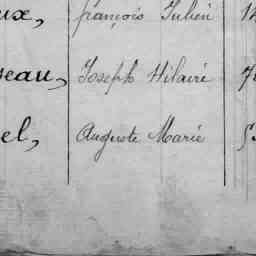 ux, françois Julien
seau, Joseph Hilaire
el, Auguste Marie